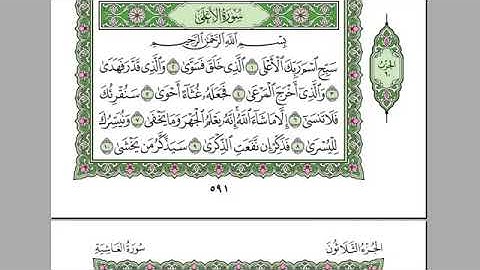 سُورَةُ الأَعْلَى
بِسْمِ اللَّهِ الرَّحْمَٰنِ الرَّحِيمِ
سَبِّحِ اسْمَ رَبِّكَ الْأَعْلَى ١ الَّذِي خَلَقَ فَسَوَّىٰ ٢ وَالَّذِي قَدَّرَ فَهَدَىٰ
٣ وَالَّذِي أَخْرَجَ الْمَرْعَىٰ ٤ فَجَعَلَهُ غُثَاءً أَحْوَىٰ ٥ سَنُقْرِئُكَ
فَلَا تَنسَىٰ ٦ إِلَّا مَا شَاءَ اللَّهُ إِنَّهُ يَعْلَمُ الْجَهْرَ وَمَا يَخْفَىٰ ٧ وَنُيَسِّرُكَ
لِلْيُسْرَىٰ ٨ فَذَكِّرْ إِن نَّفَعَتِ الذِّكْرَىٰ ٩ سَيَذَّكَّرُ مَن يَخْشَىٰ ١٠
الحزب
٦٠
٥٩١
الجُزْءُ الثَّلَاثُونَ
سُورَةُ الغَاشِيَةِ